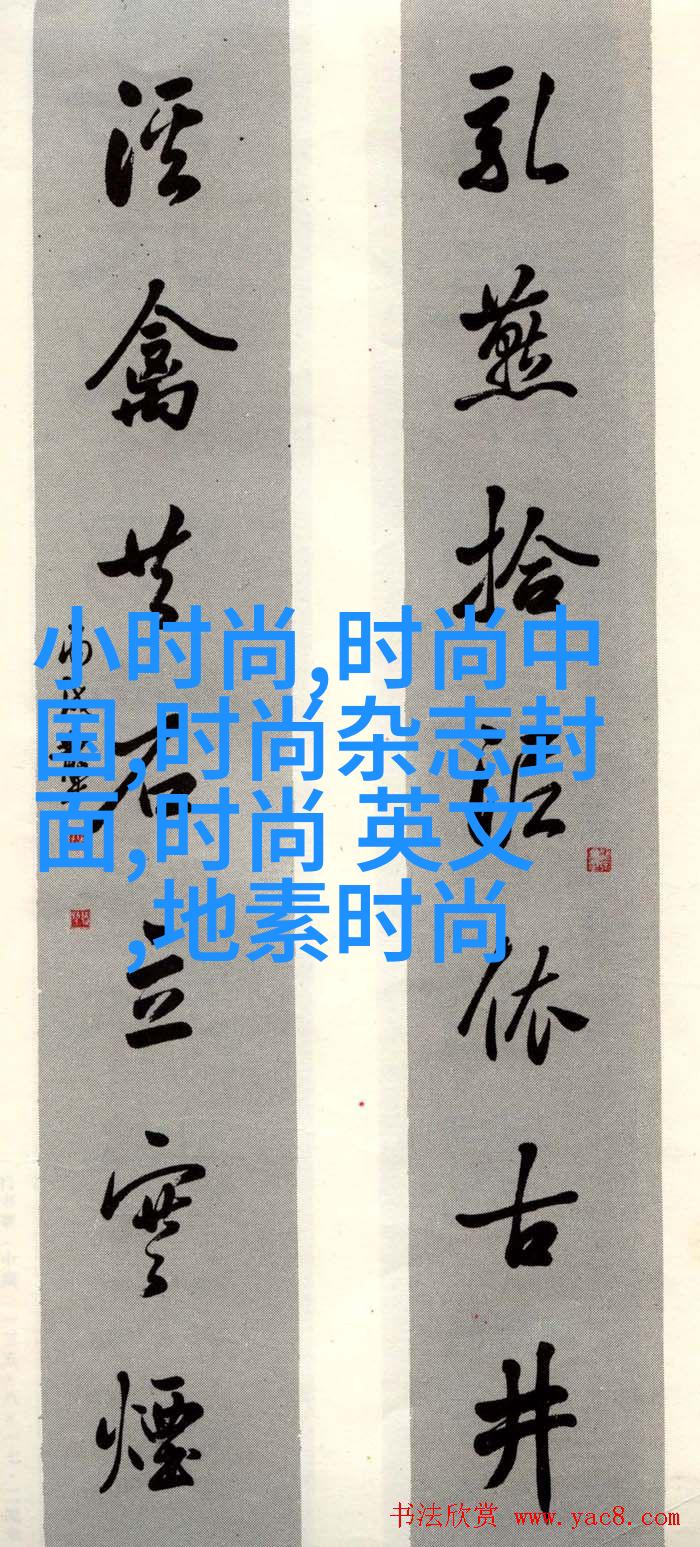 乳燕拾泥依古井
溪禽共石立寒煙
小时尚,时尚中
国,时尚杂志封
面,时尚 英文
,地素时尚
书法欣赏 www.yac8.com